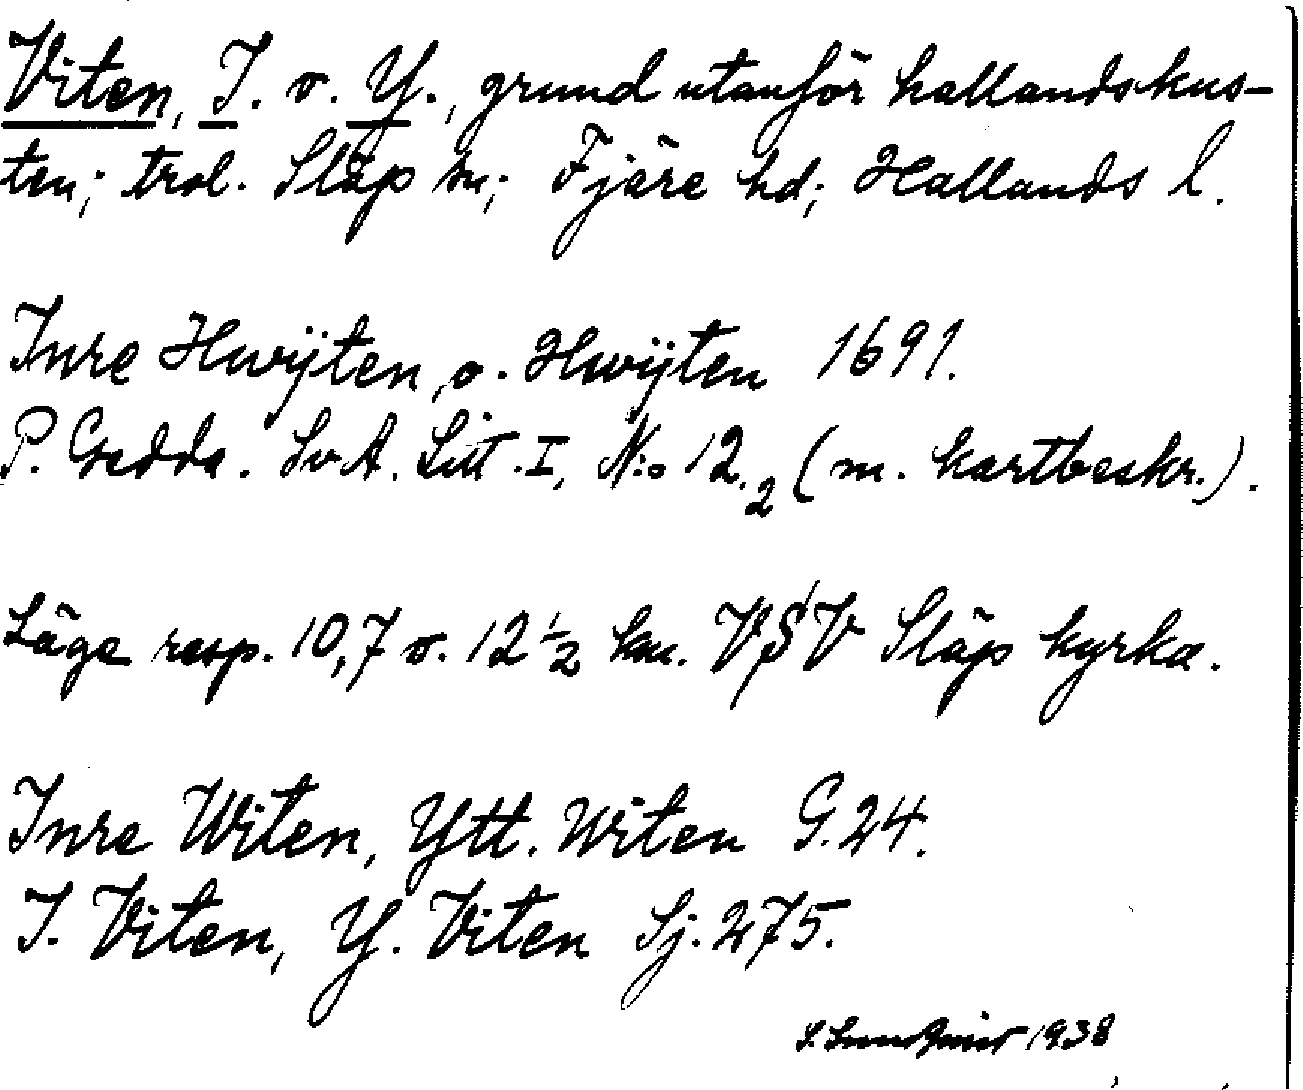 Viten, I. o. Y., grund utanför hallandskus-
ten; trol. Släp sn; Fjäre hd; Hallands l.
Inre Hwijten, o. Hwijten 1691.
P. Gedda. SvA. Litt. I, N:o 12.2 (m. kartbeskr.).
Läge resp. 10,7 o. 12 1/2 km. VSV Släp kyrka.
Inre Witen, Ytt. Witen G.24.
I. Viten, Y. Viten Sj. 275.
S. Lundquist 1938